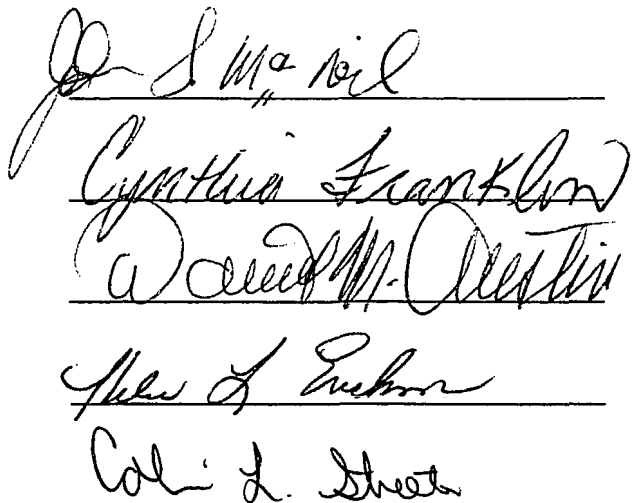 John S. McNeil
Cynthia Franklin
David M. Austin
L Erickson
L. Streeter